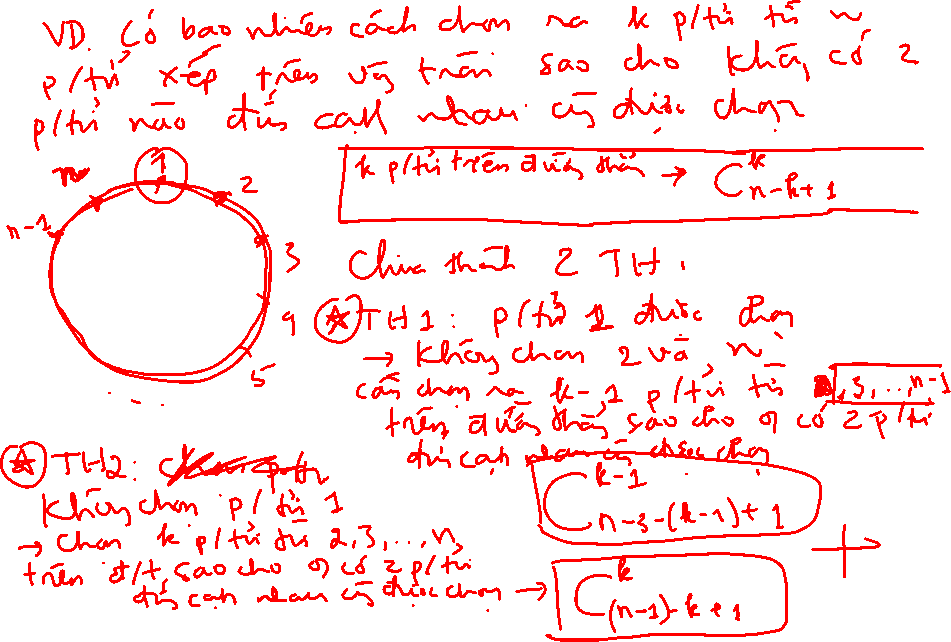 VD. Có bao nhiêu cách chọn ra k p/tử từ n
p/tử xếp trên vòng tròn sao cho không có 2
p/tử nào đứng cạnh nhau cùng được chọn
k p/tử trên đường thẳng → C^k_{n-k+1}
n 1 2
n-1 3
4
5
. . .
Chia thành 2 TH.
TH1: p/tử 1 được chọn
→ không chọn 2 và n
cần chọn ra k-1 p/tử từ 3, ..., n-1
trên đường thẳng sao cho 0 có 2 p/tử
đứng cạnh nhau cùng được chọn
C^{k-1}_{n-3-(k-1)+1}
TH2:
không chọn p/tử 1
→ chọn k p/tử từ 2,3,...,n
trên đ/t sao cho 0 có 2 p/tử
đứng cạnh nhau cùng được chọn → C^k_{(n-1)-k+1}